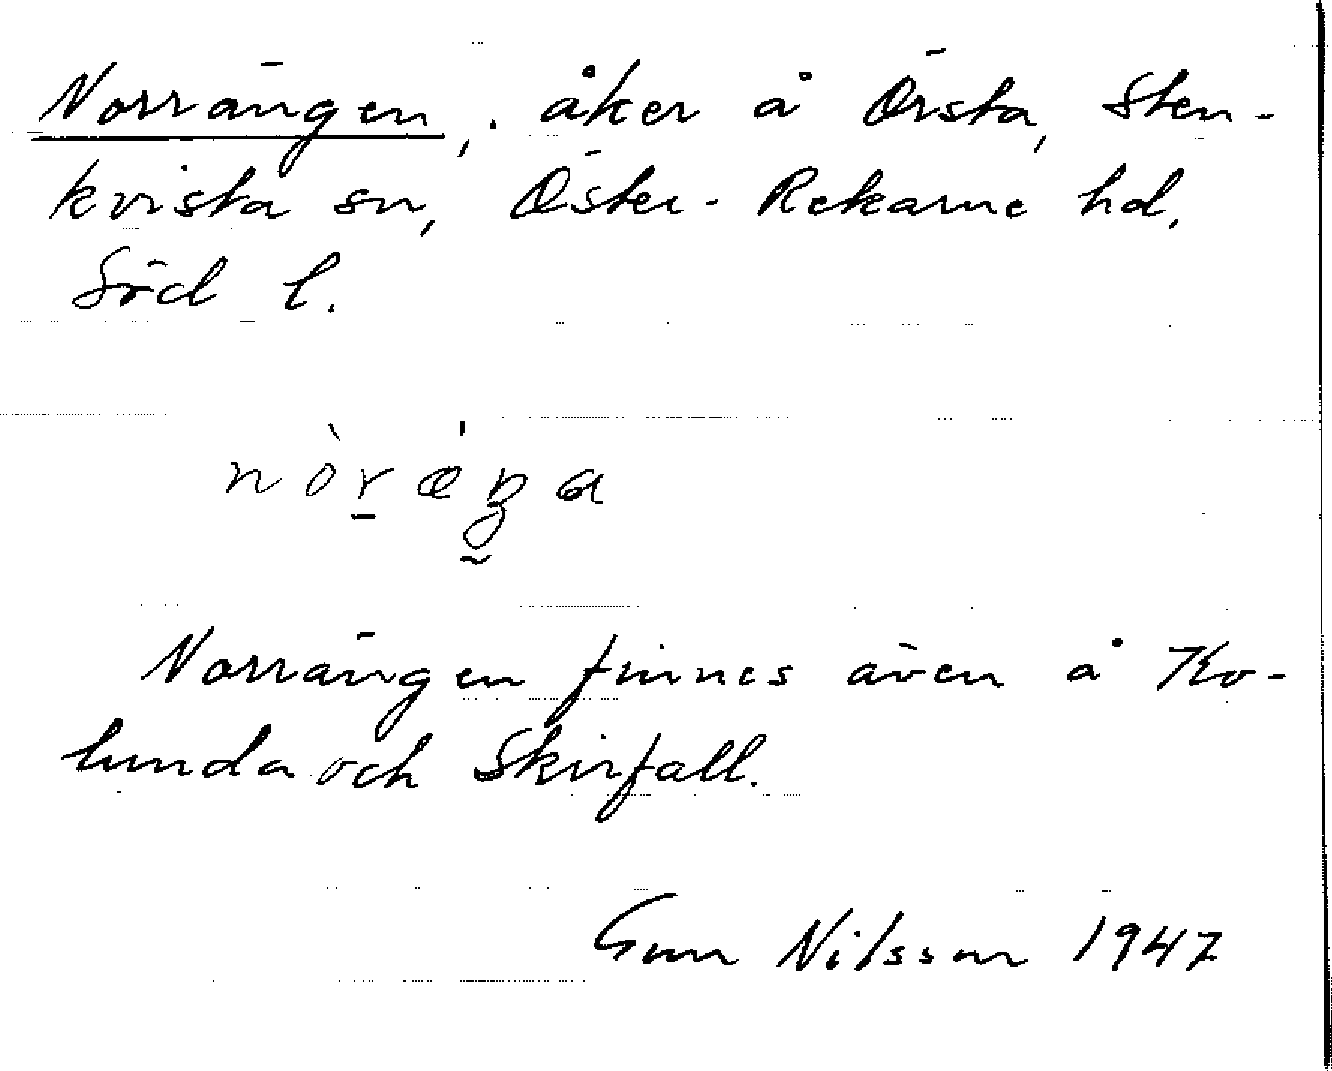 Norrängen, åker å Örsta, Sten-
kvista sn, Öster-Rekarne hd,
Söd l.
nòræŋa
Norrängen finnes även å Ko-
lunda och Skirfall.
Gun Nilsson 1947